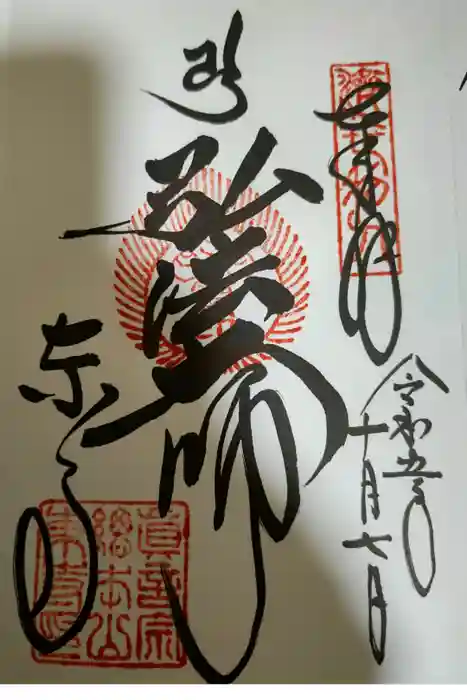 奉拝
令和五年
十月七日
弘法大師
東寺
眞言宗
總本山
東寺印